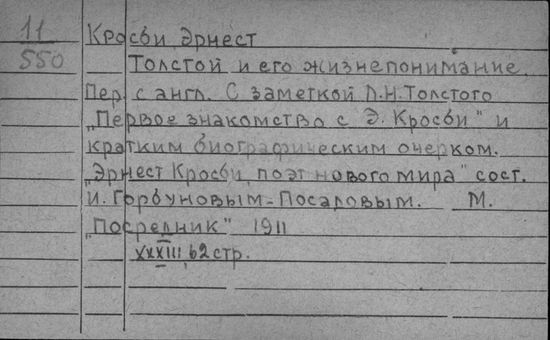 11
550
Кросби, Эрнест
Толстой и его жизнепонимание.
Пер. с англ. С заметкой Л.Н.Толстого
„Первое знакомство с Э. Кросби" и
кратким биографическим очерком.
„Эрнест Кросби, поэт нового мира" сост.
И. Горбуновым-Посадовым. М.
„Посредник" 1911
XXXIII, 62 стр.